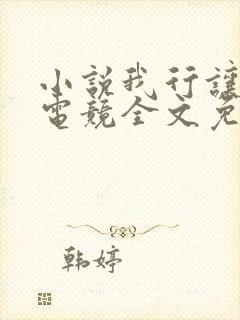 小說我行讓
電競全文免
韩婷